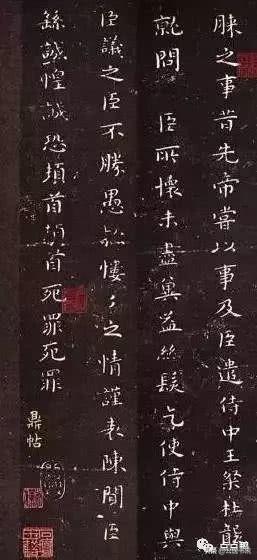 疎之事昔先帝嘗以事及臣遣侍中王粲杜襲
就問 臣所懷未盡冀益絲髮乞使侍中與
臣議之臣不勝愚款慺々之情謹表陳聞臣
繇誠惶誠恐頓首頓首死罪死罪
鼎帖